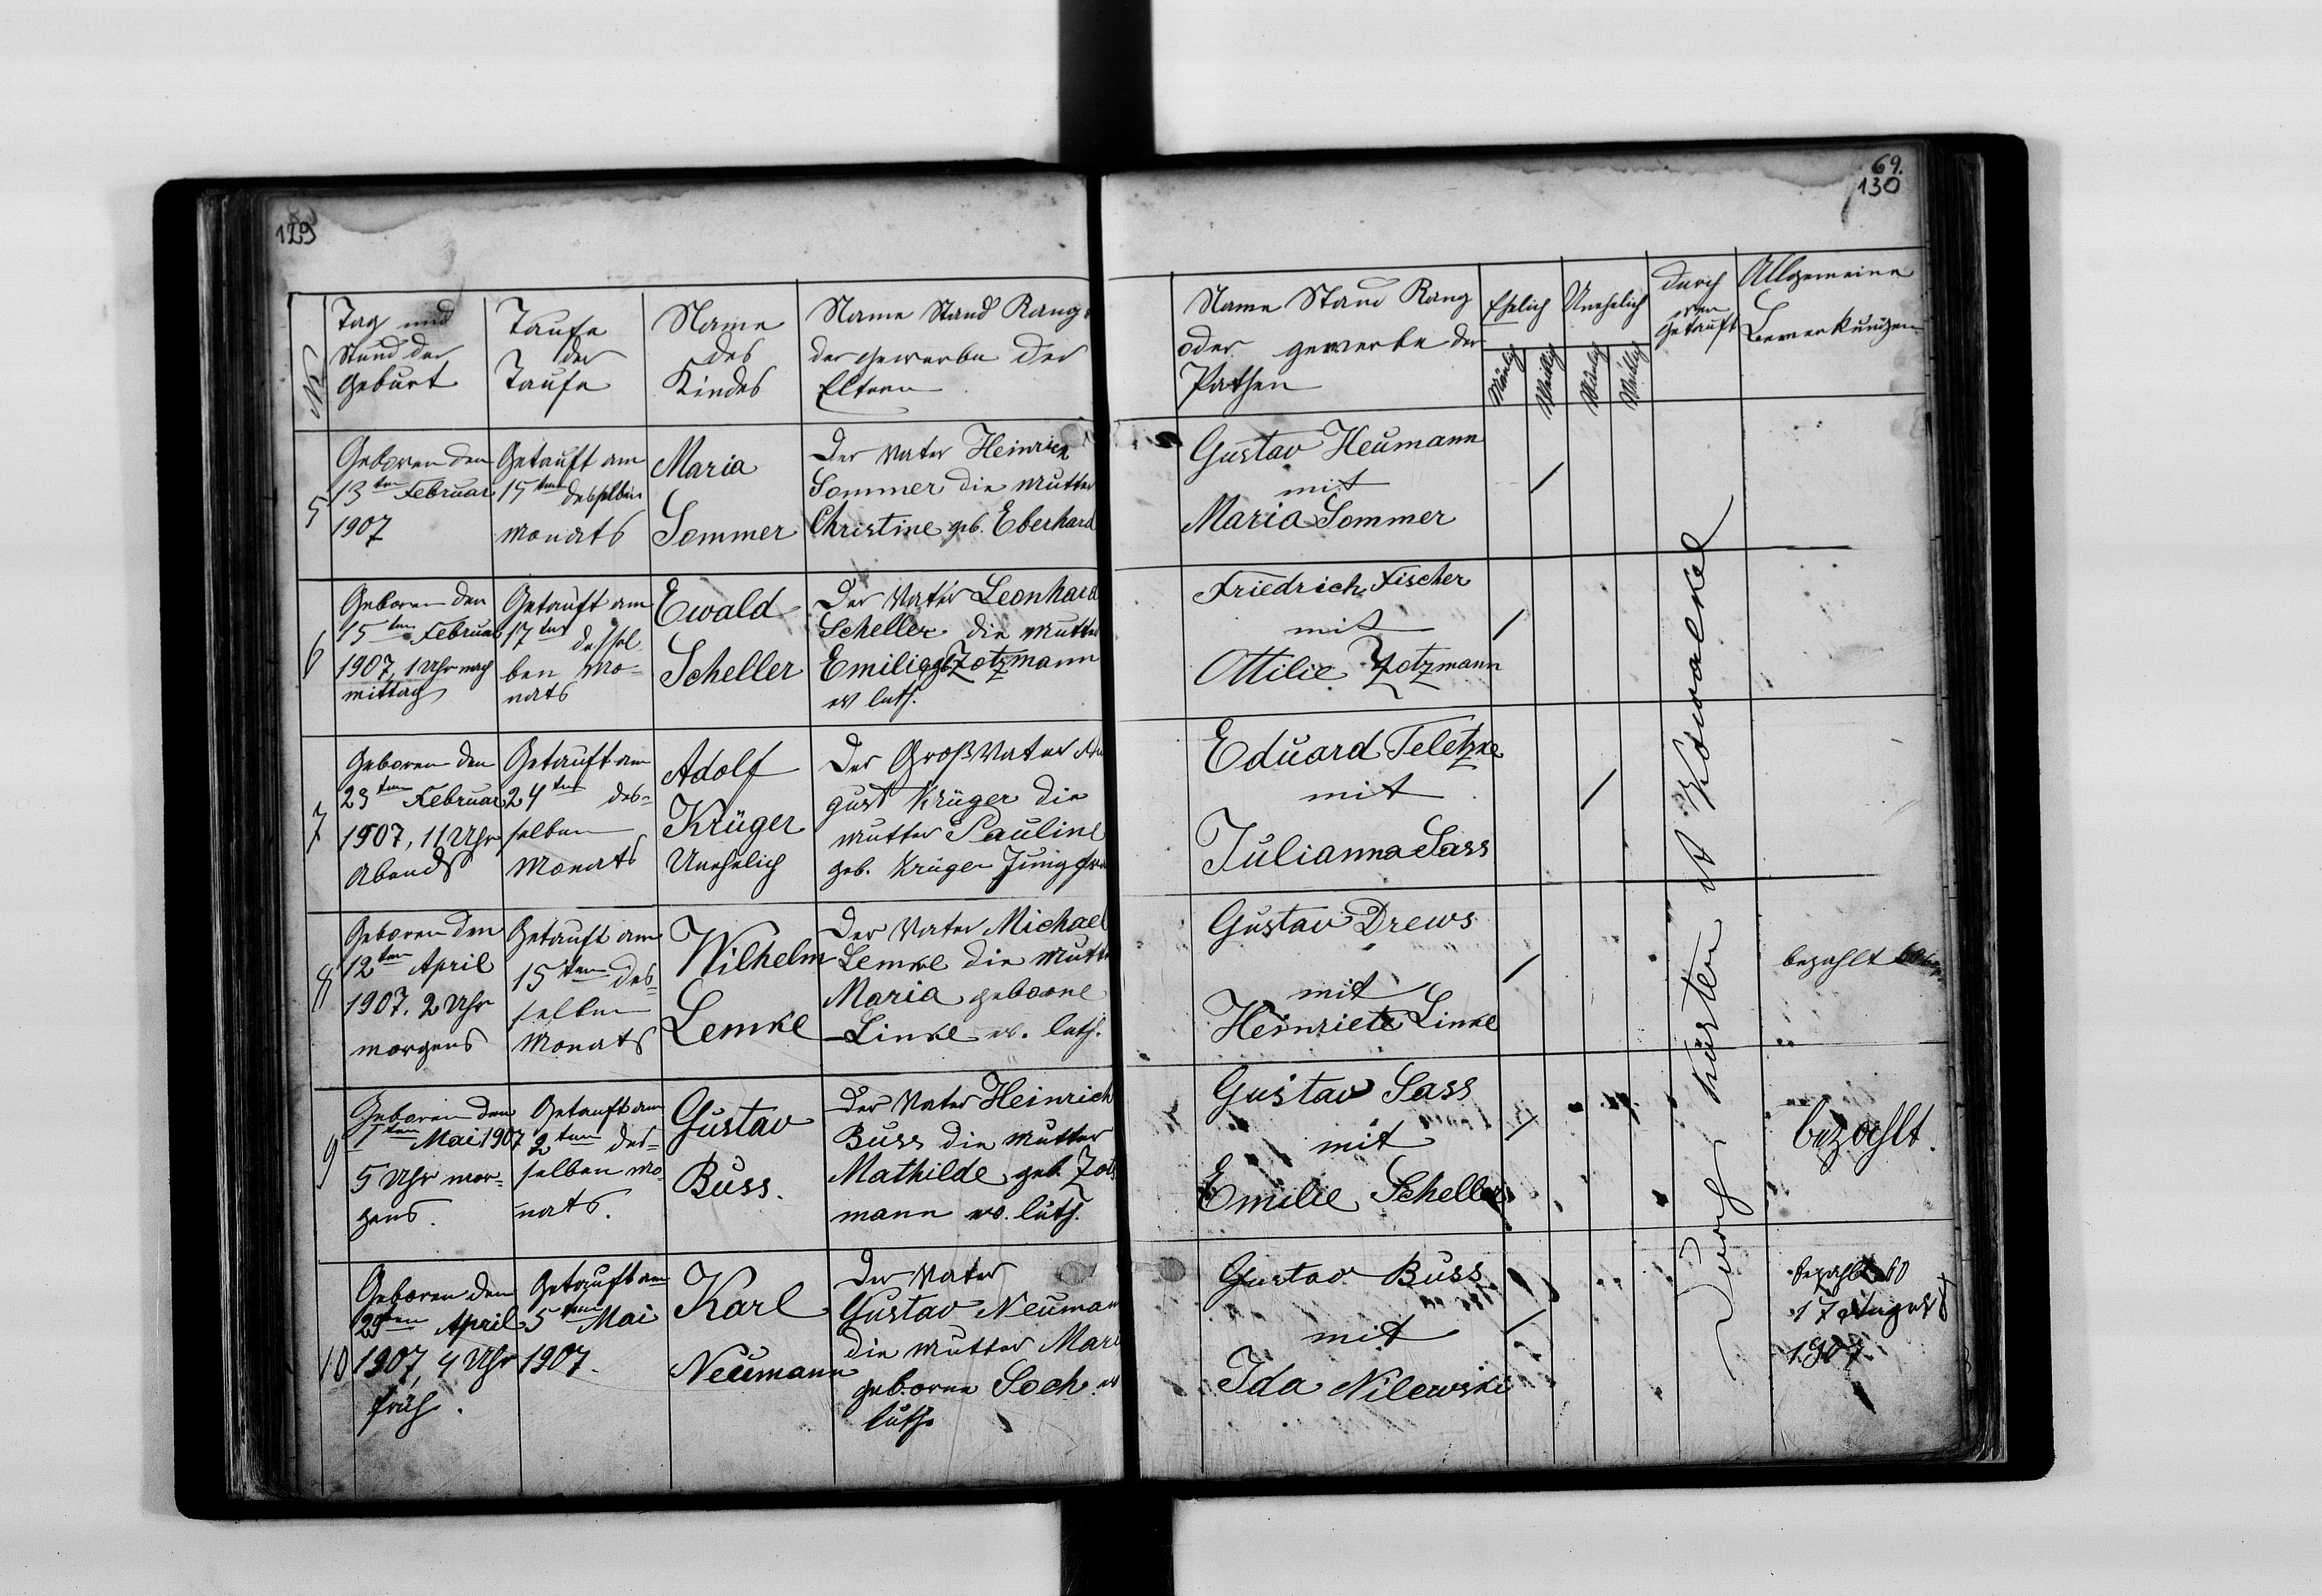 129
69.
130
No
Tag und
Stund der
Geburt
Taufe
der
Taufe
Name
des
Kindes
Name Stand Rang
der Gewerbe der
Eltern
Name Stand Rang
oder gewerbe der
Pathen
Ehelich
Unehelich
Mänlich
Weiblich
Mänlich
Weiblich
durch
wen
Getauft
Allgemeine
Bemerkungen
5
Geboren den
13ten Februar
1907
Getauft am
15ten desselben
Monats
Maria
Sommer
Der Vater Heinrich
Sommer die Mutter
Christine geb. Eberhard
Gustav Heumann
mit
Maria Sommer
6
Geboren den
15ten Februar
1907, 1 Uhr nach
mittag
Getauft am
17ten dessel
ben Mo-
nats
Ewald
Scheller
Der Vater Leonhard
Scheller die Mutter
Emilie geb Zotzmann
ev luth.
Friedrich Fischer
mit
Ottilie Zotzmann
7
Geboren den
23ten Februar
1907, 11 Uhr
Abends
Getauft am
24ten des-
selben
Monats
Adolf
Krüger
Unehelich
Der Großvater Au
gust Krüger die
Mutter Pauline
geb. Krüger Jungfrau
Eduard Teletzke
mit
Julianna Sass
8
Geboren den
12ten April
1907. 2 Uhr
morgens
Getauft am
15ten des-
selben
Monats
Wilhelm
Lemke
Der Vater Michael
Lemke die Mutter
Maria geborne
Linke ev. luth.
Gustav Drews
mit
Heinriete Linke
bezahlt
9
Geboren den
1ten Mai 1907
5 Uhr mor-
gens.
Getauft am
2ten des-
selben Mo-
nats.
Gustav
Buss.
Der Vater Heinrich
Buss die Mutter
Mathilde geb. Zotz
mann ev. luth.
Gustav Sass
mit
Emilie Scheller
bezahlt.
10
Geboren den
29ten April
1907, 4 Uhr
früh.
Getauft am
5ten Mai
1907.
Karl
Neumann
Der Vater
Gustav Neumann
die Mutter Mari
geborne Soch ev
luth.
Gustav Buss
mit
Ida Nilewski
bezahlt 60
17 August
1907.
Durch Küster A Kowalke